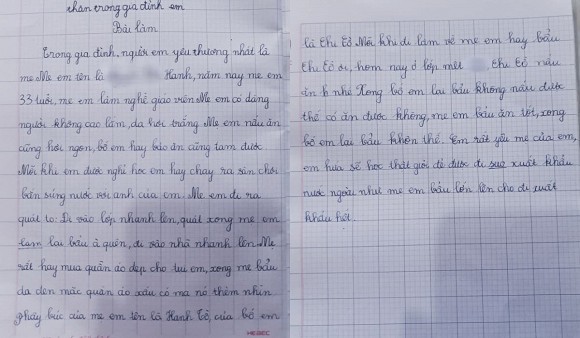 nhân trong gia đình em
Bài làm
Trong gia đình, người em yêu thương nhất là
mẹ. Mẹ em tên là Hạnh, năm nay mẹ em
33 tuổi, mẹ em làm nghề giáo viên. Mẹ em có dáng
người không cao lắm, da hơi trắng. Mẹ em nấu ăn
cũng hơi ngon, bố em hay bảo ăn cũng tạm được
Mỗi khi em được nghỉ học em hay chạy ra sân chơi
bắn súng nước với anh của em. Mẹ em đi ra
quát to: Đi vào lớp nhanh lên, quát xong mẹ em
lại bảu à quên, đi vào nhà nhanh lên. Mẹ
rất hay mua quần áo đẹp cho tui em, xong mẹ bảu
da đen mặc quần áo xấu có ma nó thèm nhìn
phây búc của mẹ em tên là Hạnh Tồ, của bố em
là Thu Tồ. Mỗi khi đi làm về mẹ em hay bảu
thu tồ ơi, hôm nay ở lớp mệt thu tồ nấu
ăn h nhé. Xong bố em lại bảu không nấu được
thế có ăn được không, mẹ em bảu ăn tốt, xong
bố em lại bảu khôn thế. Em rất yêu mẹ của em,
em hứa sẽ học thật giỏi để được đi xuất khẩu
nước ngoài như mẹ em bảu lớn lên cho đi xuất
khẩu hết.
HESEC